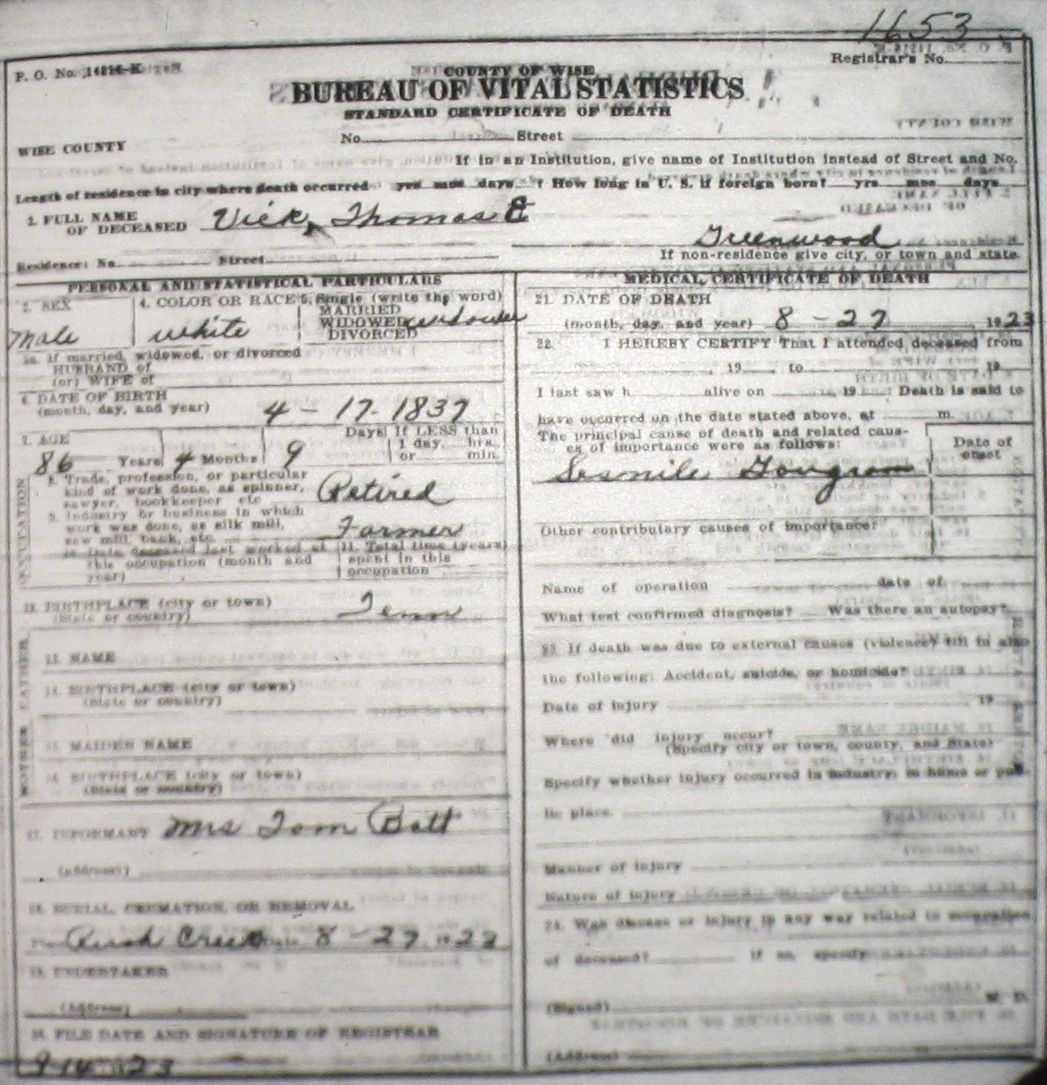 1653
F. O. No. 14816-K
Registrar's No.
COUNTY OF WISE
BUREAU OF VITAL STATISTICS
STANDARD CERTIFICATE OF DEATH
WISE COUNTY
No. Street
If in an Institution, give name of Institution instead of Street and No.
Length of residence in city where death occurred yrs mos days ? How long in U. S. if foreign born? yrs mos days
2. FULL NAME OF DECEASED Vick, Thomas E
Greenwood
Residence: No. Street
If non-residence give city, or town and state.
PERSONAL AND STATISTICAL PARTICULARS
3. SEX Male
4. COLOR OR RACE white
5. Single (write the word) MARRIED WIDOWED DIVORCED widower
5a. If married, widowed, or divorced
HUSBAND of
(or) WIFE of
6. DATE OF BIRTH
(month, day, and year) 4 - 17 - 1837
7. AGE 86 Years 4 Months 9 Days If LESS than 1 day, hrs. or min.
8. Trade, profession, or particular
kind of work done, as spinner,
sawyer, bookkeeper etc Retired
9. Industry or business in which
work was done, as silk mill,
saw mill, bank, etc. Farmer
10. Date deceased last worked at
this occupation (month and
year)
11. Total time (years)
spent in this
occupation
OCCUPATION
12. BIRTHPLACE (city or town)
(State or country) Tenn
FATHER
13. NAME
14. BIRTHPLACE (city or town)
(State or country)
MOTHER
15. MAIDEN NAME
16. BIRTHPLACE (city or town)
(State or country)
17. INFORMANT Mrs Tom Batt
(Address)
18. BURIAL, CREMATION, OR REMOVAL
Place Rush Creek Date 8 - 27 1923
19. UNDERTAKER
(Address)
20. FILE DATE AND SIGNATURE OF REGISTRAR
9-14 1923
MEDICAL CERTIFICATE OF DEATH
21. DATE OF DEATH
(month, day, and year) 8 - 27 1923
22. I HEREBY CERTIFY That I attended deceased from
, 19 to 19
I last saw h alive on , 19 Death is said to
have occurred on the date stated above, at m.
The principal cause of death and related causes
of importance were as follows:
Date of onset
Sesmile Gongram
Other contributory causes of importance?
Name of operation date of
What test confirmed diagnosis? Was there an autopsy?
23. If death was due to external causes (violence) fill in also
the following: Accident, suicide, or homicide?
Date of injury 19
Where did injury occur?
(Specify city or town, county, and State)
Specify whether injury occurred in industry, in home or pub-
lic place.
Manner of injury
Nature of injury
24. Was disease or injury in any way related to occupation
of deceased? If so, specify
(Signed) M. D.
(Address)